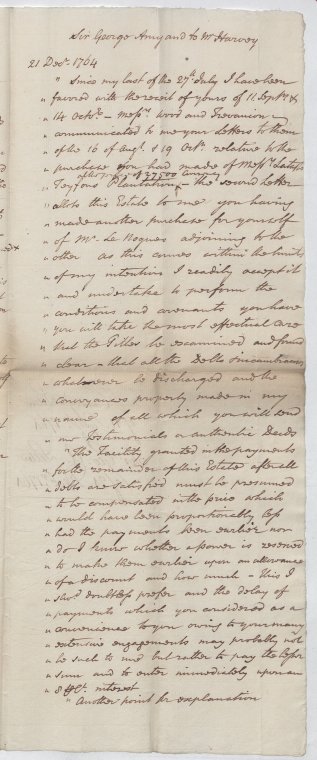 Sir George Amyand to Mr Harvey
21 Decr. 1764
" Since my last of the 27th July I have been
" favred with the receit of yours of 11 Septr. &
" 14 Octr. — Messrs. Wood and Trevanion
" communicated to me your Letters to them
" of the 16 of Augt. & 19 Octr. relative to the
" purchase you had made of Messrs.
" Plantation — the second Letter
" allots this Estate to me you having
" made another purchase for yourself
" of Mr. De Nogues adjoining to the
" other as this comes within the limits
" of my intentions I readily accept it
" and undertake to perform the
" conditions and covenants you have
" you will take the most effectual care
" that the Titles be examined and found
" clear — that all the Debts Incumbrances
" whatsoever be discharged and the
" conveyances properly made in my
" name of all which you will send
" me Testimonials or authentic Deeds
" The Facility granted in the payments
" for the remainder of this Estate after all
" debts are satisfied must be presumed
" to be compensated in the price which
" would have been proportionably less
" had the payments been earlier nor
" do I know whether a power is reserved
" to make them earlier upon an allowance
" of a discount and how much — this I
" shod. doubtless prefer and the delay of
" payments which you considered as a
" convenience to you owing to your many
" extensive engagements may probably not
" be such to me but rather to pay the lesser
" sum and to enter immediately upon an
" 8 ct. interest
" Another point for explanation